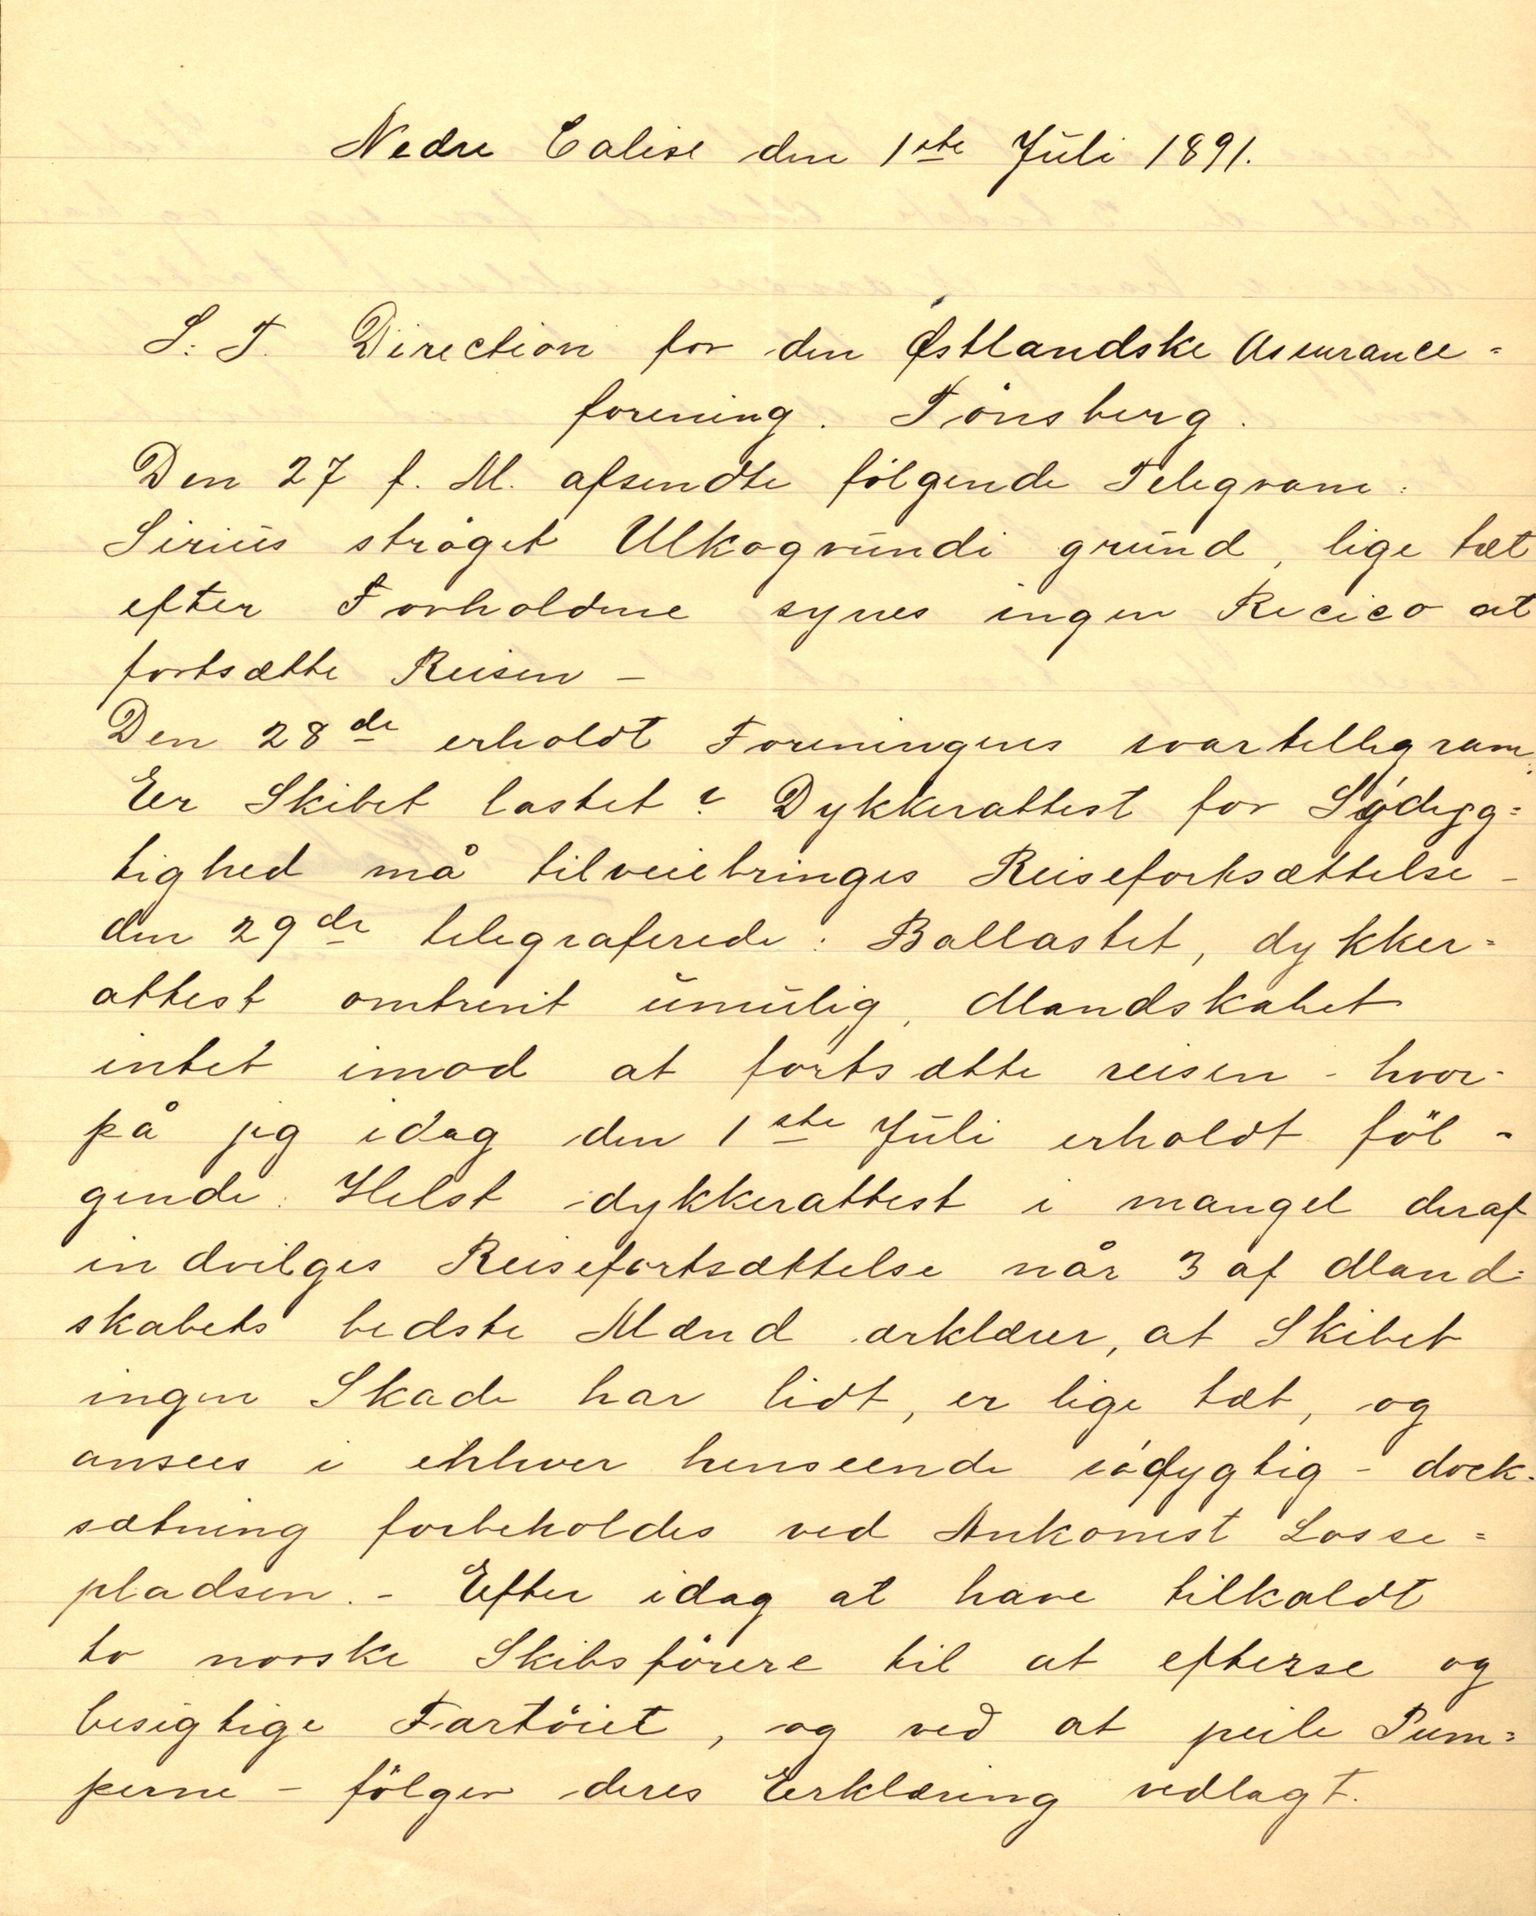 Nedre Calise den 1ste Juli 1891.
S. T. Direction for den Østlandske Assurance=
forening. Tönsberg.
Den 27 f. M. afsendte fölgende Telegram:
Sirius ströget Ulkogrundi grund, lige tæt
efter Forholdene synes ingen Recico at
fortsætte Reisen –
Den 28de erholdt Foreningens svartellegram:
Eer Skibet lastet? Dykkerattest for Sødygg=
tighed må tilveiebringes Reisefortsættelse –
den 29de telegraferede: Ballastet, dykker=
attest omtrent umulig, Mandskabet
intet imod at fortsætte reisen – hvor-
på jeg idag den 1ste Juli erholdt föl-
gende: Helst dykkerattest i mangel deraf
indvilges Reisefortsættelse når 3 af Mand=
skabets bedste Mænd ærklærer, at Skibet
ingen Skade har lidt, er lige tæt, og
ansees i ehhver henseende södygtig – dock=
sætning forbeholdes ved Ankomst Losse=
pladsen. – Efter idag at have tilkaldt
to norske Skibsförere til at efterse og
besigtige Fartöiet, og ved at peile Pum=
perne – fölger deres Erklæring vedlagt.